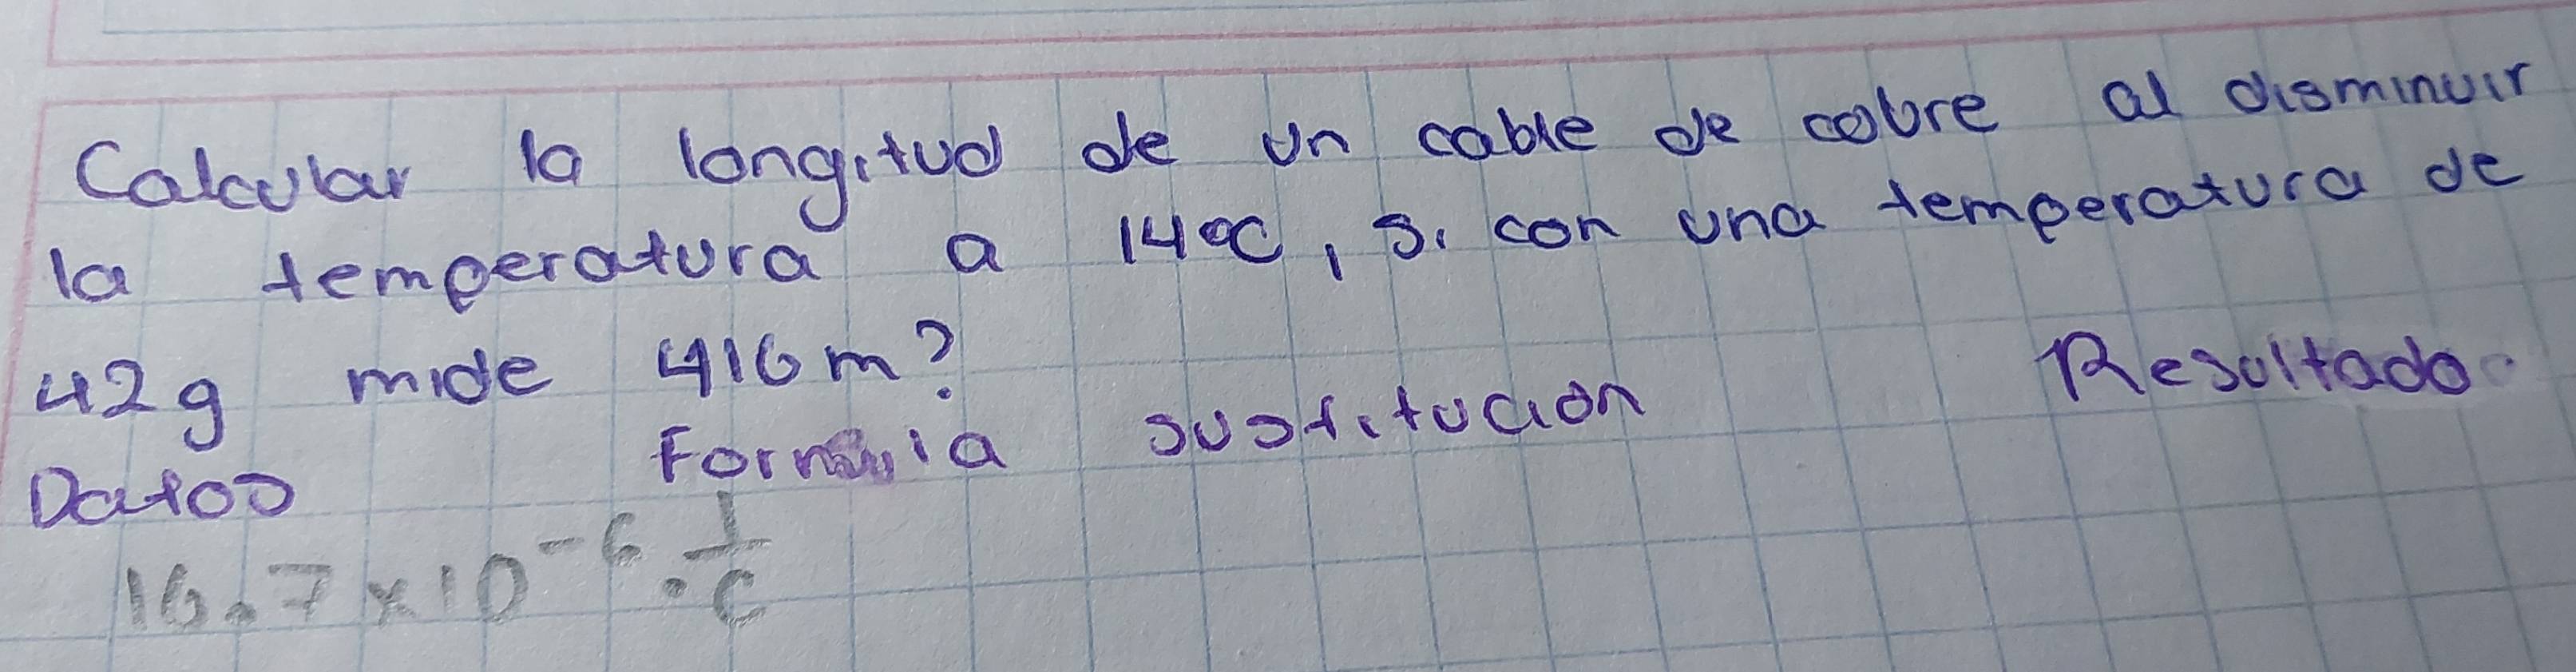 Calcular la longitud de un cable de cobre al disminuir
la temperatura a 14°C, si con una temperatura de
42g mide 416m?
Datos Formula sustitución Resultado
16.7x10⁻⁶ · 1/C